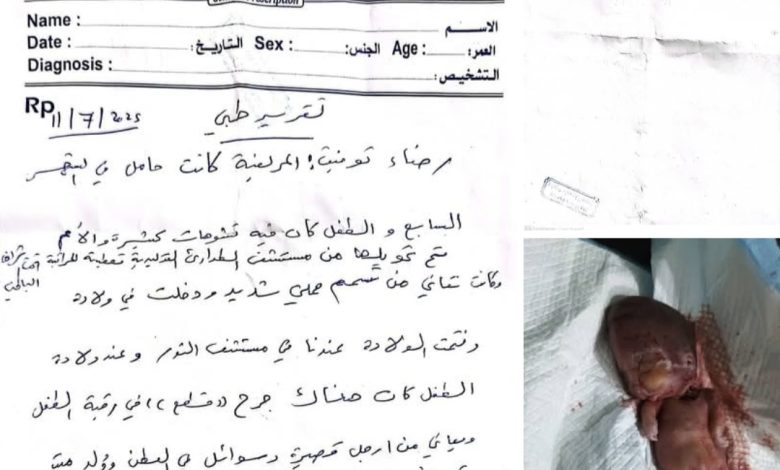 Prescription
Name : الاسم
Date : التاريخ: Sex : الجنس: Age : العمر:
Diagnosis : التشخيص:
Rp
11/7/2025 تقرير طبي
المريضة كانت حامل في الشهر
السابع و الطفل كان فيه تشوهات كثيرة والأم
تم تحويلها من مستشفى الطوارئ
وكانت تعاني من تسمم حملي شديد ودخلت في ولادة
وتمت الولادة عندنا في مستشفى النور وعند ولادة
الطفل كان هناك جرح (( قطع )) في رقبة الطفل
ويعاني من ارجل قصيرة وسوائل في البطن وولد ميت